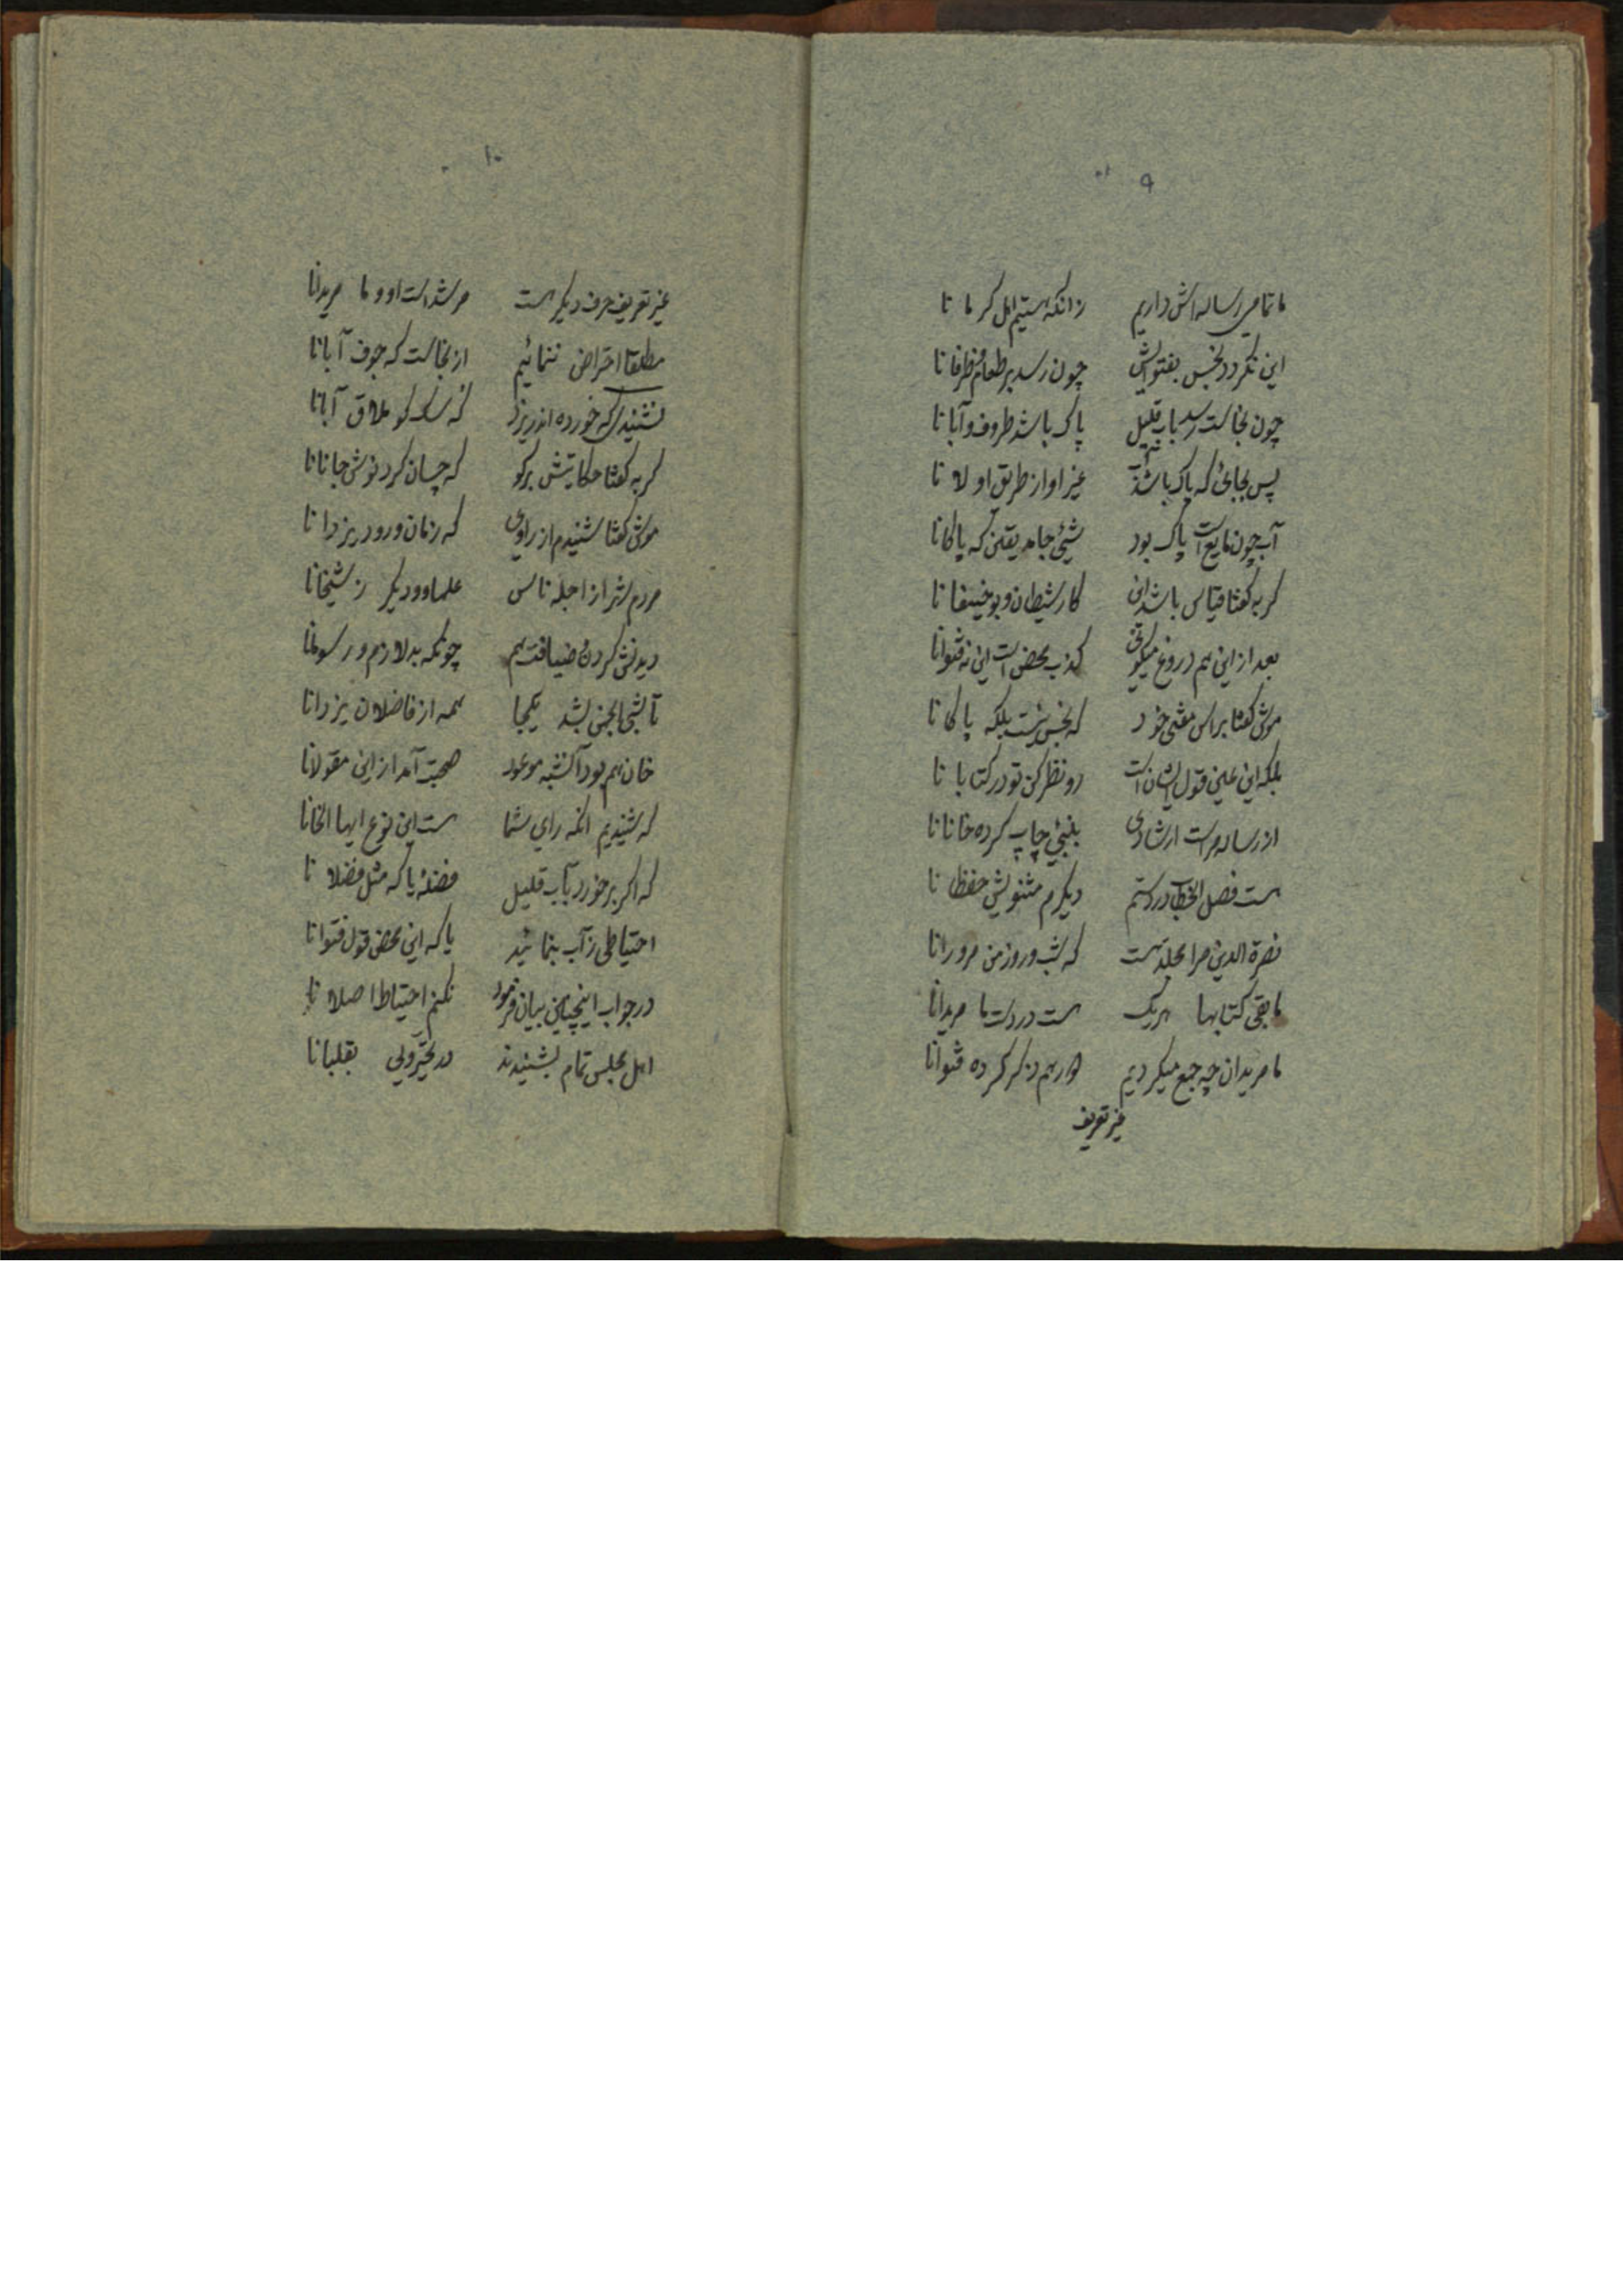 ۹
ما تمامی رساله‌اش داریم زانکه هستیم اهل کرمانا
این نگردد نجس بفتوایش چون رسد بر طعام و ظرفانا
چون نجاست رسد بآب قلیل پاک باشد ظروف و آبانا
پس بجائی که پاک باشد آب غیر او از طریق اولانا
آب چون مایع است پاک بود شیئی جامد یقین که پاکانا
گربه گفتا قیاس باشد این کار شیطان و بوحنیفانا
بعد از این هم دروغ میگوئی کذب محض است این نه فتوانا
موش گفتا براس مفتی خود که نجس نیست بلکه پاکانا
بلکه این عین قول ایشان است رو نظر کن تو در کتابانا
از رساله مراست ارشادی بلنبئی چاپ کرده خانانا
هست فصل الخطاب در دستم دیگرم مثنویش حفظانا
نصرة الدین مرا بجلد هست که شب و روز من مرورانا
مابقی کتابها هریک هست در دست ما مریدانا
ما مریدان چه جمع میگردیم هر هم ذکر کرده فتوانا
غیر تعریف
۱۰
غیر تعریف حرف دیگر هست مرشد است او و ما مریدانا
مطلقا احتراض ننمائیم از نجاست که جوف آبانا
نشنیدی که خورده اندر یزد ملاق آبانا
گربه گفتا حکایتش برگو که چسان کرد نوش جانانا
موش گفتا شنیدم از راوی که زمان ورود یزدانا
مردم شهر از اجله ناس علما و دیگر ز شیخانا
دیدنش کرده ضیافت هم چونکه بد لازم و رسومانا
تا شبی انجمن بشد یکجا همه از فاضلان یزدانا
خان هم بود آنشبه موعود صحبت آمد از این مقولانا
که شنیدیم انکه رای شما هست این نوع ایها الخانا
که اگر برخورد بآب قلیل فضله یا که مثل فضلانا
احتیاطی ز آب بنمائید یا که این محض قول فتوانا
در جواب اینچنین بیان فرمود نکنم احتیاط اصلانا
اهل مجلس تمام بشنیدند در تحیر ولی بقلبانا